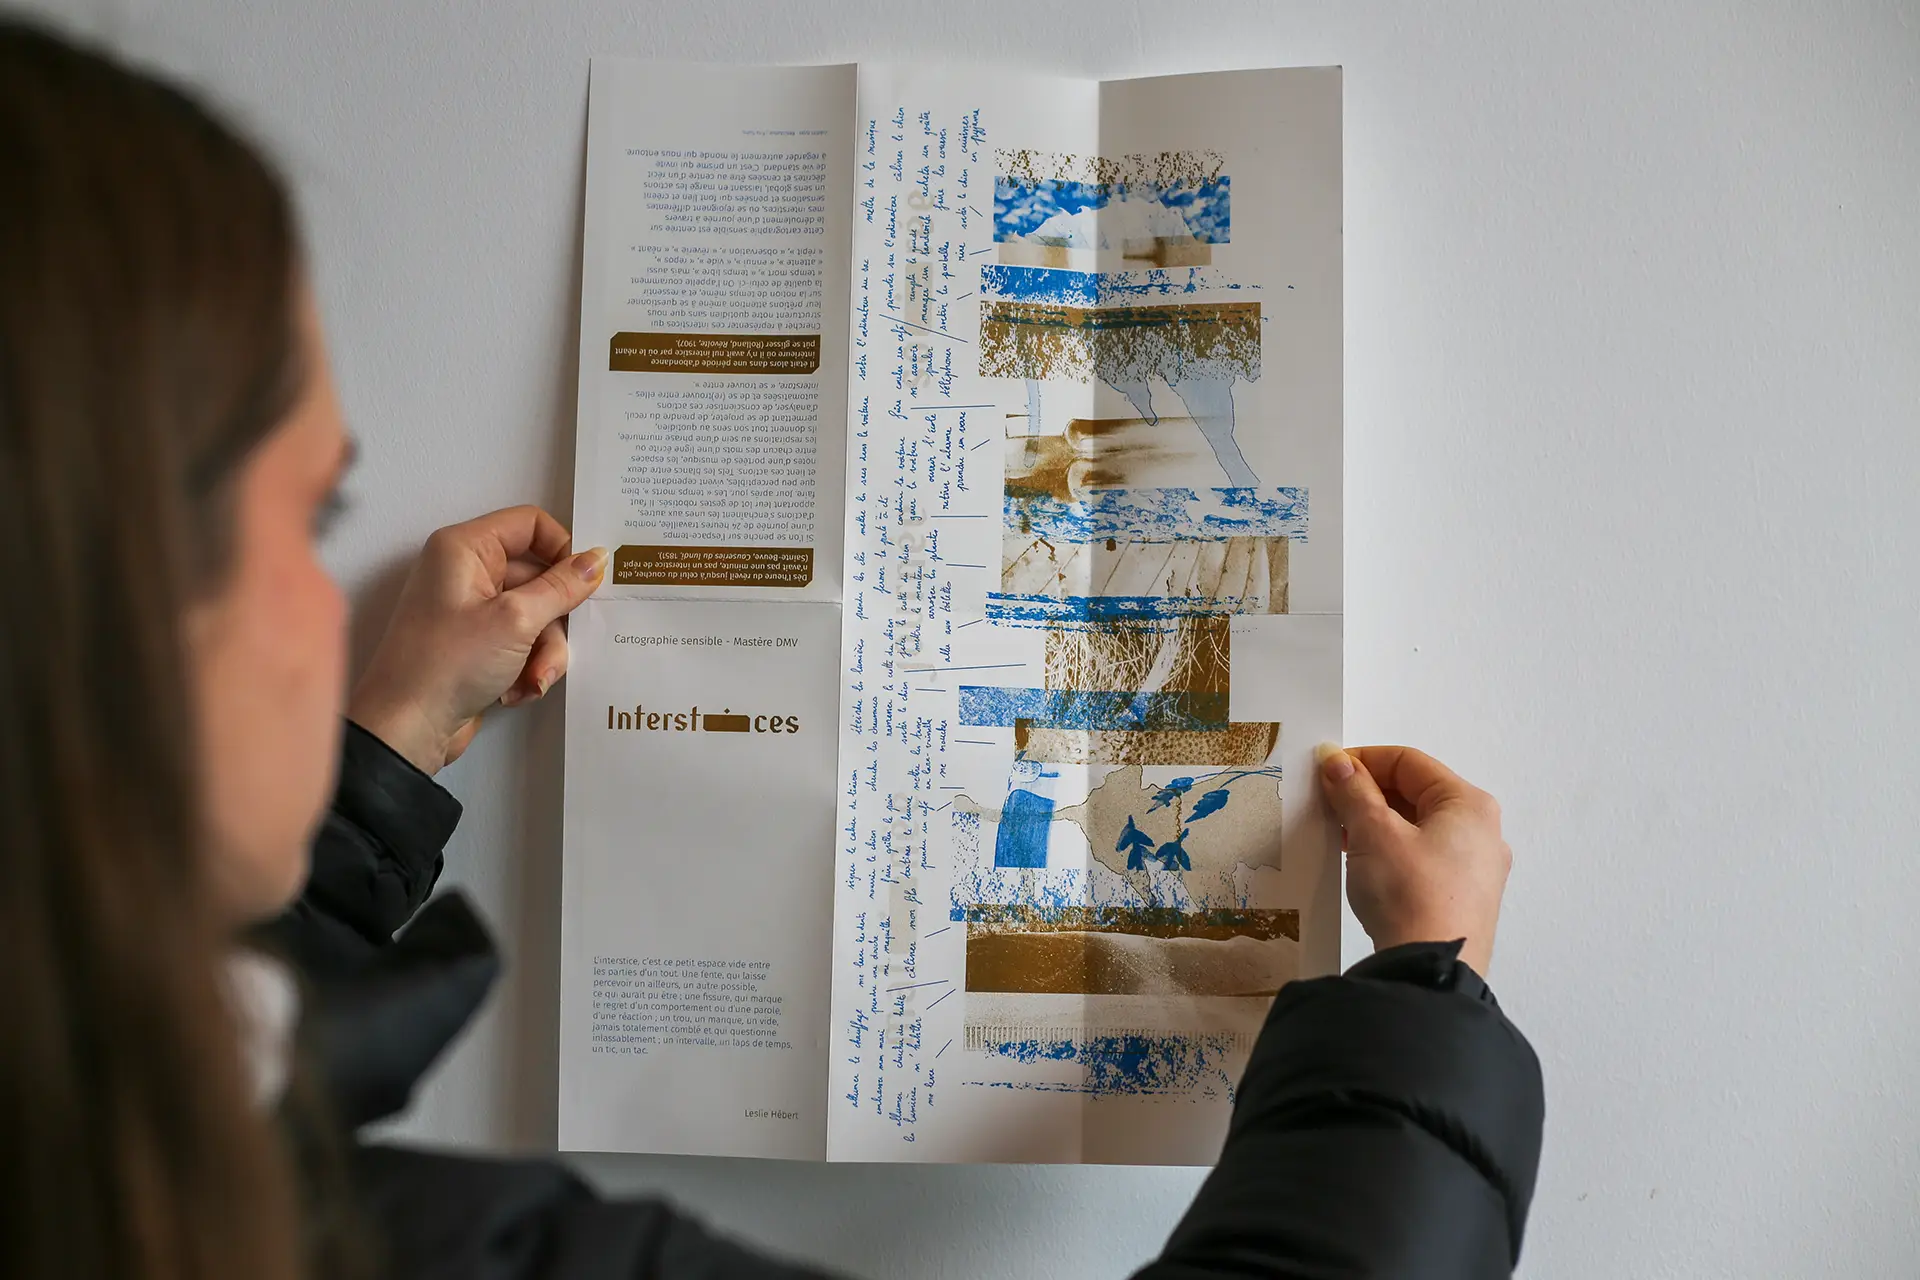 Cartographie sensible - Mastère DMV
Interstices
L'interstice, c'est ce petit espace vide entre
les parties d'un tout. Une fente, qui laisse
percevoir un ailleurs, un autre possible,
ce qui aurait pu être ; une fissure, qui marque
le regret d'un comportement ou d'une parole,
d'une réaction ; un trou, un manque, un vide,
jamais totalement comblé et qui questionne
inlassablement ; un intervalle, un laps de temps,
un tic, un tac.
Leslie Hébert
Dès l'heure du réveil jusqu'à celui du coucher, elle
n'avait pas une minute, pas un interstice de répit
(Sainte-Beuve, Causeries du lundi, 1851).
Si l'on se penche sur l'espace-temps
d'une journée de 24 heures travaillée, nombre
d'actions s'enchaînent les unes aux autres,
apportant leur lot de gestes robotisés. Il faut
faire, jour après jour. Les « temps morts », bien
que peu perceptibles, vivent cependant encore,
et lient ces actions. Tels les blancs entre deux
notes d'une portées de musique, les espaces
entre chacun des mots d'une ligne écrite ou
les respirations au sein d'une phrase murmurée,
ils donnent tout son sens au quotidien,
permettant de se projeter, de prendre du recul,
d'analyser, de conscientiser ces actions
automatisées et de se (re)trouver entre elles –
interstare, « se trouver entre ».
Il était alors dans une période d'abondance
intérieure où il n'y avait nul interstice par où le néant
pût se glisser (Rolland, Révolte, 1907).
Chercher à représenter ces interstices qui
structurent notre quotidien sans que nous
leur prêtions attention amène à se questionner
sur la notion de temps même, et à ressentir
la qualité de celui-ci. On l'appelle couramment
« temps mort », « temps libre », mais aussi
« attente », « ennui », « vide », « repos »,
« répit », « observation », « rêverie », « néant »
Cette cartographie sensible est centrée sur
le déroulement d'une journée à travers
mes interstices, où se rejoignent différentes
sensations et pensées qui font lien et créent
un sens global, laissant en marge les actions
décrites et censées être au centre d'un récit
de vie standard. C'est un prisme qui invite
à regarder autrement le monde qui nous entoure.
allumer le chauffage
me laver les dents
signer le cahier de liaison
éteindre les lumières
prendre les clés
mettre les sacs dans la voiture
sortir l'ordinateur du sac
mettre de la musique
embrasser mon mari
prendre une douche
nourrir le chien
chercher les chaussures
fermer la porte à clé
conduire la voiture
faire couler un café
pianoter sur l'ordinateur
câliner le chien
allumer
me maquiller
faire griller le pain
sortir le chien
garer la voiture
s'asseoir
manger un sandwich
acheter un goûter
la lumière
s'habiller
câliner mon fils
tartiner le beurre
mettre le manteau
ouvrir l'école
parler
sortir les poubelles
faire les courses
me lever
prendre un café
se moucher
aller aux toilettes
arroser les plantes
retirer l'alarme
prendre un verre
téléphoner
rire
sortir le chien en pyjama
cuisiner